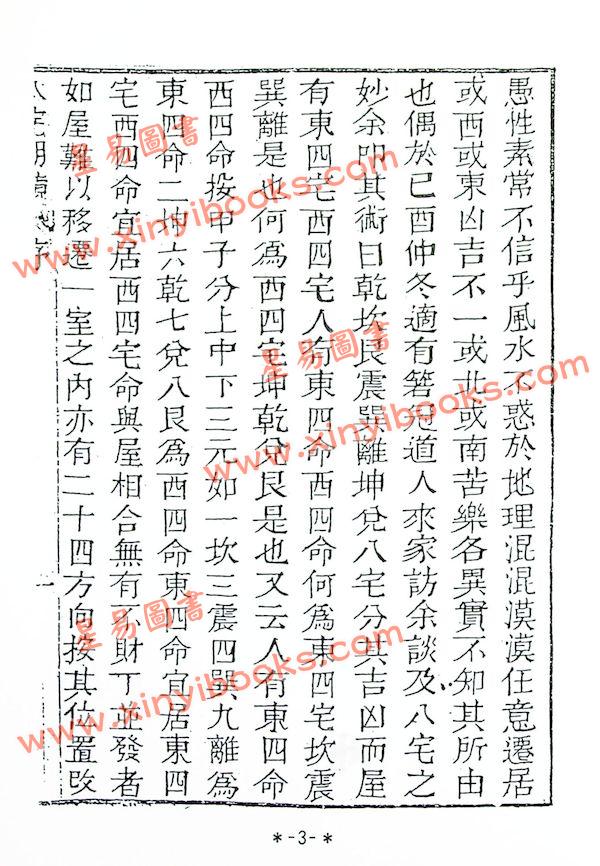 愚性素常不信乎風水不惑於地理混混漠漠任意遷居
或西或東凶吉不一或北或南苦樂各異實不知其所由
也偶於己酉仲冬適有箬冠道人來家訪余談及八宅之
妙余叩其術曰乾坎艮震巽離坤兌八宅分其吉凶而屋
有東四宅西四宅人有東四命西四命何為東四宅坎震
巽離是也何為西四宅坤乾兌艮是也又云人有東四命
西四命按甲子分上中下三元如一坎三震四巽九離為
東四命二坤六乾七兌八艮為西四命東四命宜居東四
宅西四命宜居西四宅命與屋相合無有不財丁並發者
如屋難以移遷一室之內亦有二十四方向按其位置改
八宅明鏡 序
一
*-3-*
星易圖書
www.xinyibooks.com
星易圖書
www.xinyibooks.com
星易圖書
www.xinyibooks.com